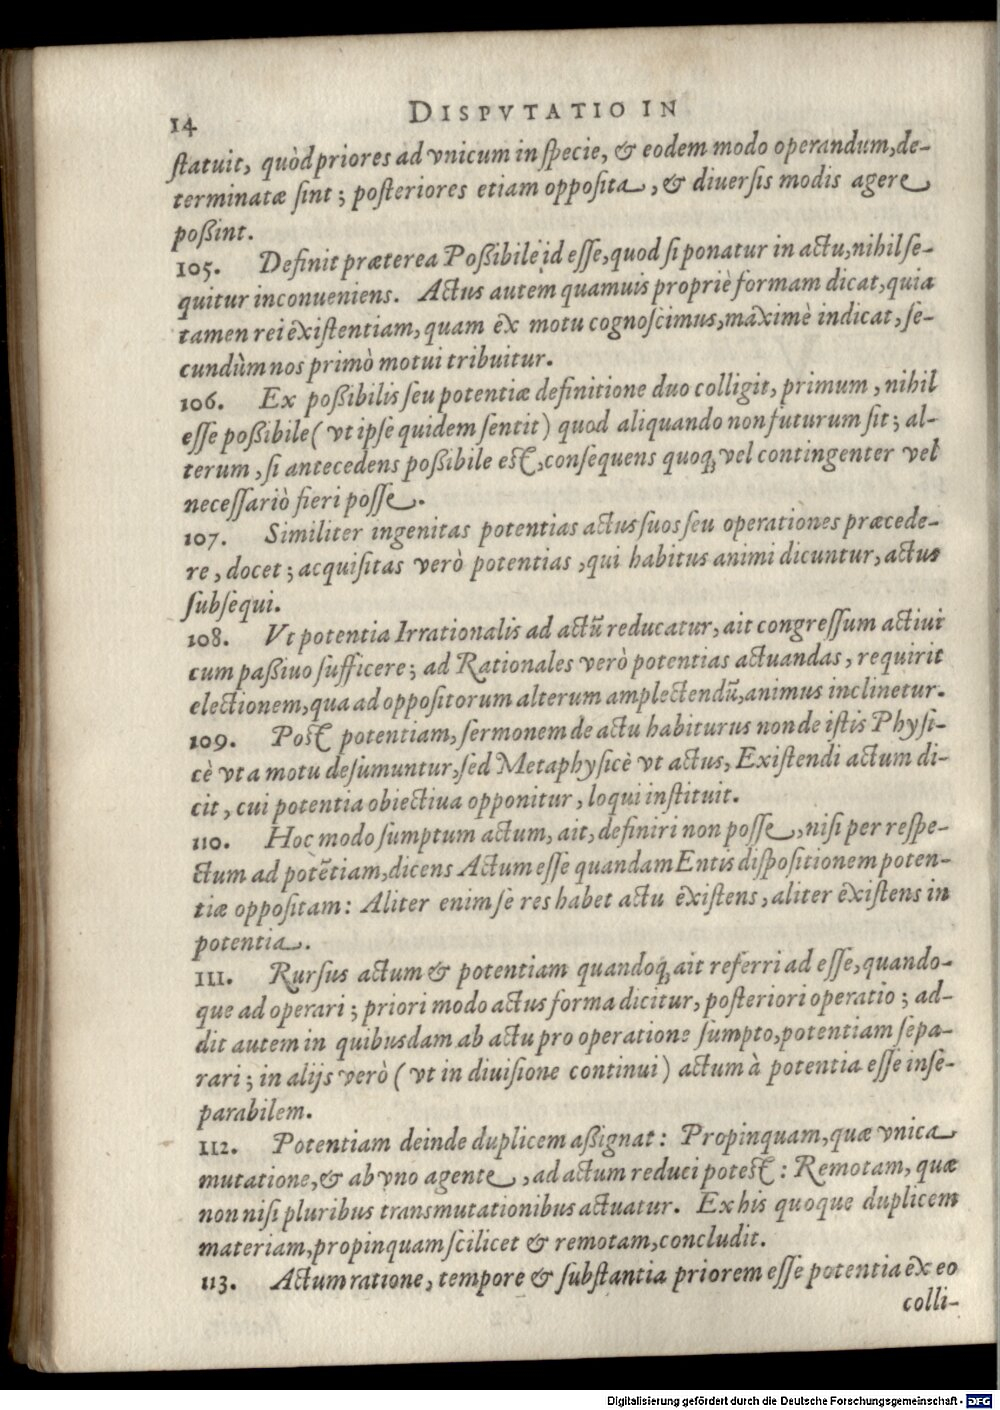 14 DISPVTATIO IN
ſtatuit, quòd priores ad vnicum in ſpecie, & eodem modo operandum, de-
terminatæ ſint; poſteriores etiam oppoſita, & diuerſis modis agere
poßint.
105. Definit præterea Poßibile id eſſe, quod ſi ponatur in actu, nihil ſe-
quitur inconueniens. Actus autem quamuis propriè formam dicat, quia
tamen rei exiſtentiam, quam ex motu cognoſcimus, maximè indicat, ſe-
cundùm nos primò motui tribuitur.
106. Ex poßibilis ſeu potentiæ definitione duo colligit, primum, nihil
eſſe poßibile (vt ipſe quidem ſentit) quod aliquando non futurum ſit; al-
terum, ſi antecedens poßibile eſt, conſequens quoq; vel contingenter vel
neceſſariò fieri poſſe.
107. Similiter ingenitas potentias actus ſuos ſeu operationes præcede-
re, docet; acquiſitas verò potentias, qui habitus animi dicuntur, actus
ſubſequi.
108. Vt potentia Irrationalis ad actũ reducatur, ait congreſſum actiui
cum paßiuo ſufficere; ad Rationales verò potentias actuandas, requirit
electionem, qua ad oppoſitorum alterum amplectendũ, animus inclinetur.
109. Poſt potentiam, ſermonem de actu habiturus non de iſtis Phyſi-
cè vt a motu deſumuntur, ſed Metaphyſicè vt actus, Exiſtendi actum di-
cit, cui potentia obiectiua opponitur, loqui inſtituit.
110. Hoc modo ſumptum actum, ait, definiri non poſſe, niſi per reſpe-
ctum ad potẽtiam, dicens Actum eſſe quandam Entis diſpoſitionem poten-
tiæ oppoſitam: Aliter enim ſe res habet actu exiſtens, aliter exiſtens in
potentia.
111. Rurſus actum & potentiam quandoq; ait referri ad eſſe, quando-
que ad operari; priori modo actus forma dicitur, poſteriori operatio; ad-
dit autem in quibusdam ab actu pro operatione ſumpto, potentiam ſepa-
rari; in alijs verò (vt in diuiſione continui) actum à potentia eſſe inſe-
parabilem.
112. Potentiam deinde duplicem aßignat: Propinquam, quæ vnica
mutatione, & ab vno agente, ad actum reduci poteſt: Remotam, quæ
non niſi pluribus transmutationibus actuatur. Ex his quoque duplicem
materiam, propinquam ſcilicet & remotam, concludit.
113. Actum ratione, tempore & ſubſtantia priorem eſſe potentia ex eo
colli-
Digitalisierung gefördert durch die Deutsche Forschungsgemeinschaft - DFG